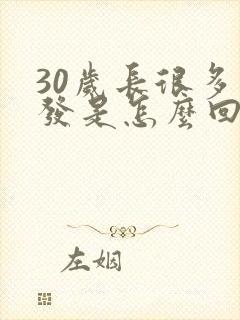 30歲長很多
發是怎麼回
左姻